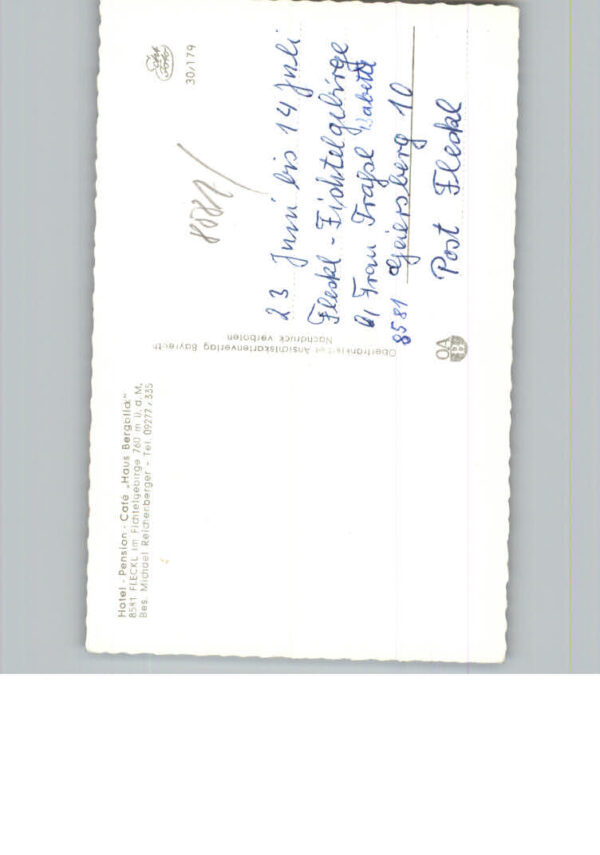 Hotel - Pension - Café „Haus Bergblick"
8581 FLECKL im Fichtelgebirge 760 m ü. d. M.
Bes. Michael Reichenberger - Tel. 09277 / 335
Echt Foto
30/179
8581/
23 Juni bis 14 Juli
Fleckl - Fichtelgebirge
Frau Traßl Babette
8581 Geiersberg 10
Post Fleckl
Oberfränkischer Ansichtskartenverlag Bayreuth
Nachdruck verboten
OA
B